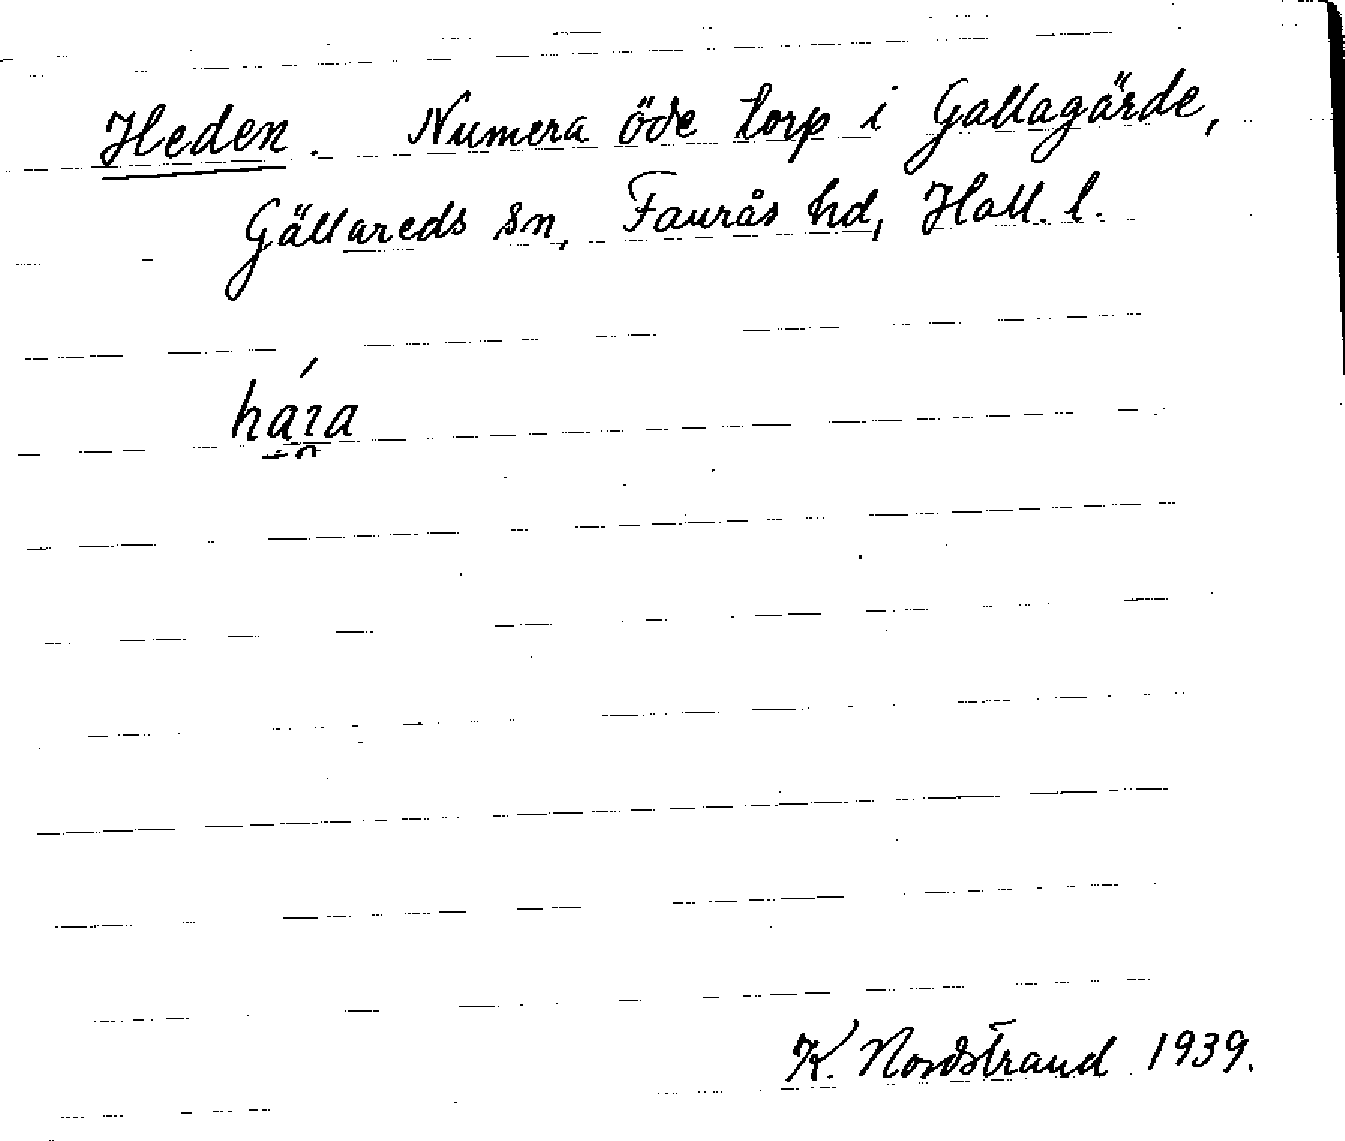 Heden. Numera öde torp i Gallagärde,
Gällareds sn, Faurås hd, Hall. l.
K. Nordstrand 1939.